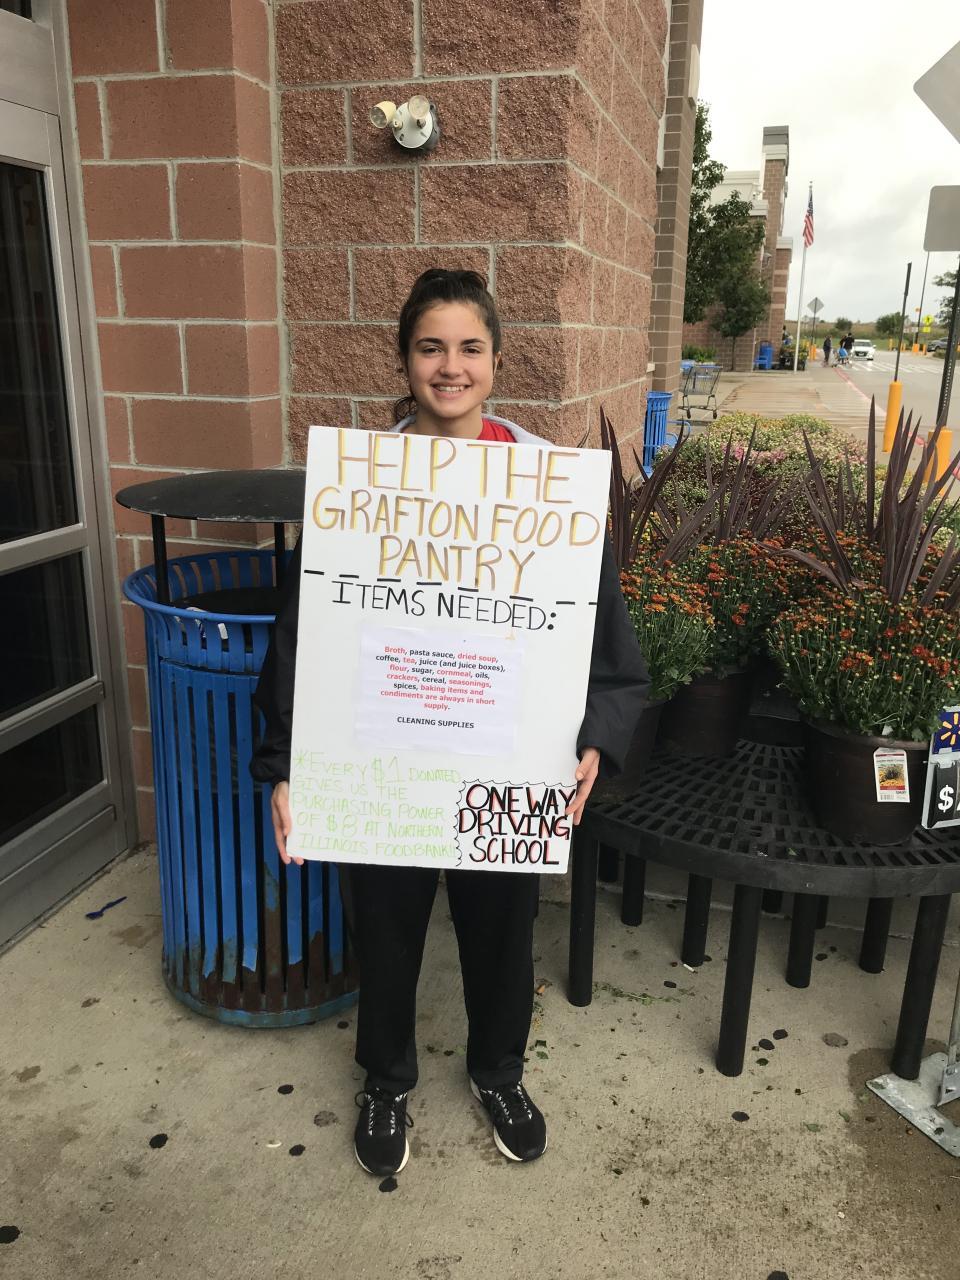 HELP THE
GRAFTON FOOD
PANTRY
ITEMS NEEDED:
Broth, pasta sauce, dried soup,
coffee, tea, juice (and juice boxes),
flour, sugar, cornmeal, oils,
crackers, cereal, seasonings,
spices, baking items and
condiments are always in short
supply.
CLEANING SUPPLIES
*EVERY $1 DONATED
GIVES US THE
PURCHASING POWER
OF $8 AT NORTHERN
ILLINOIS FOODBANK!!
ONE WAY
DRIVING
SCHOOL
$